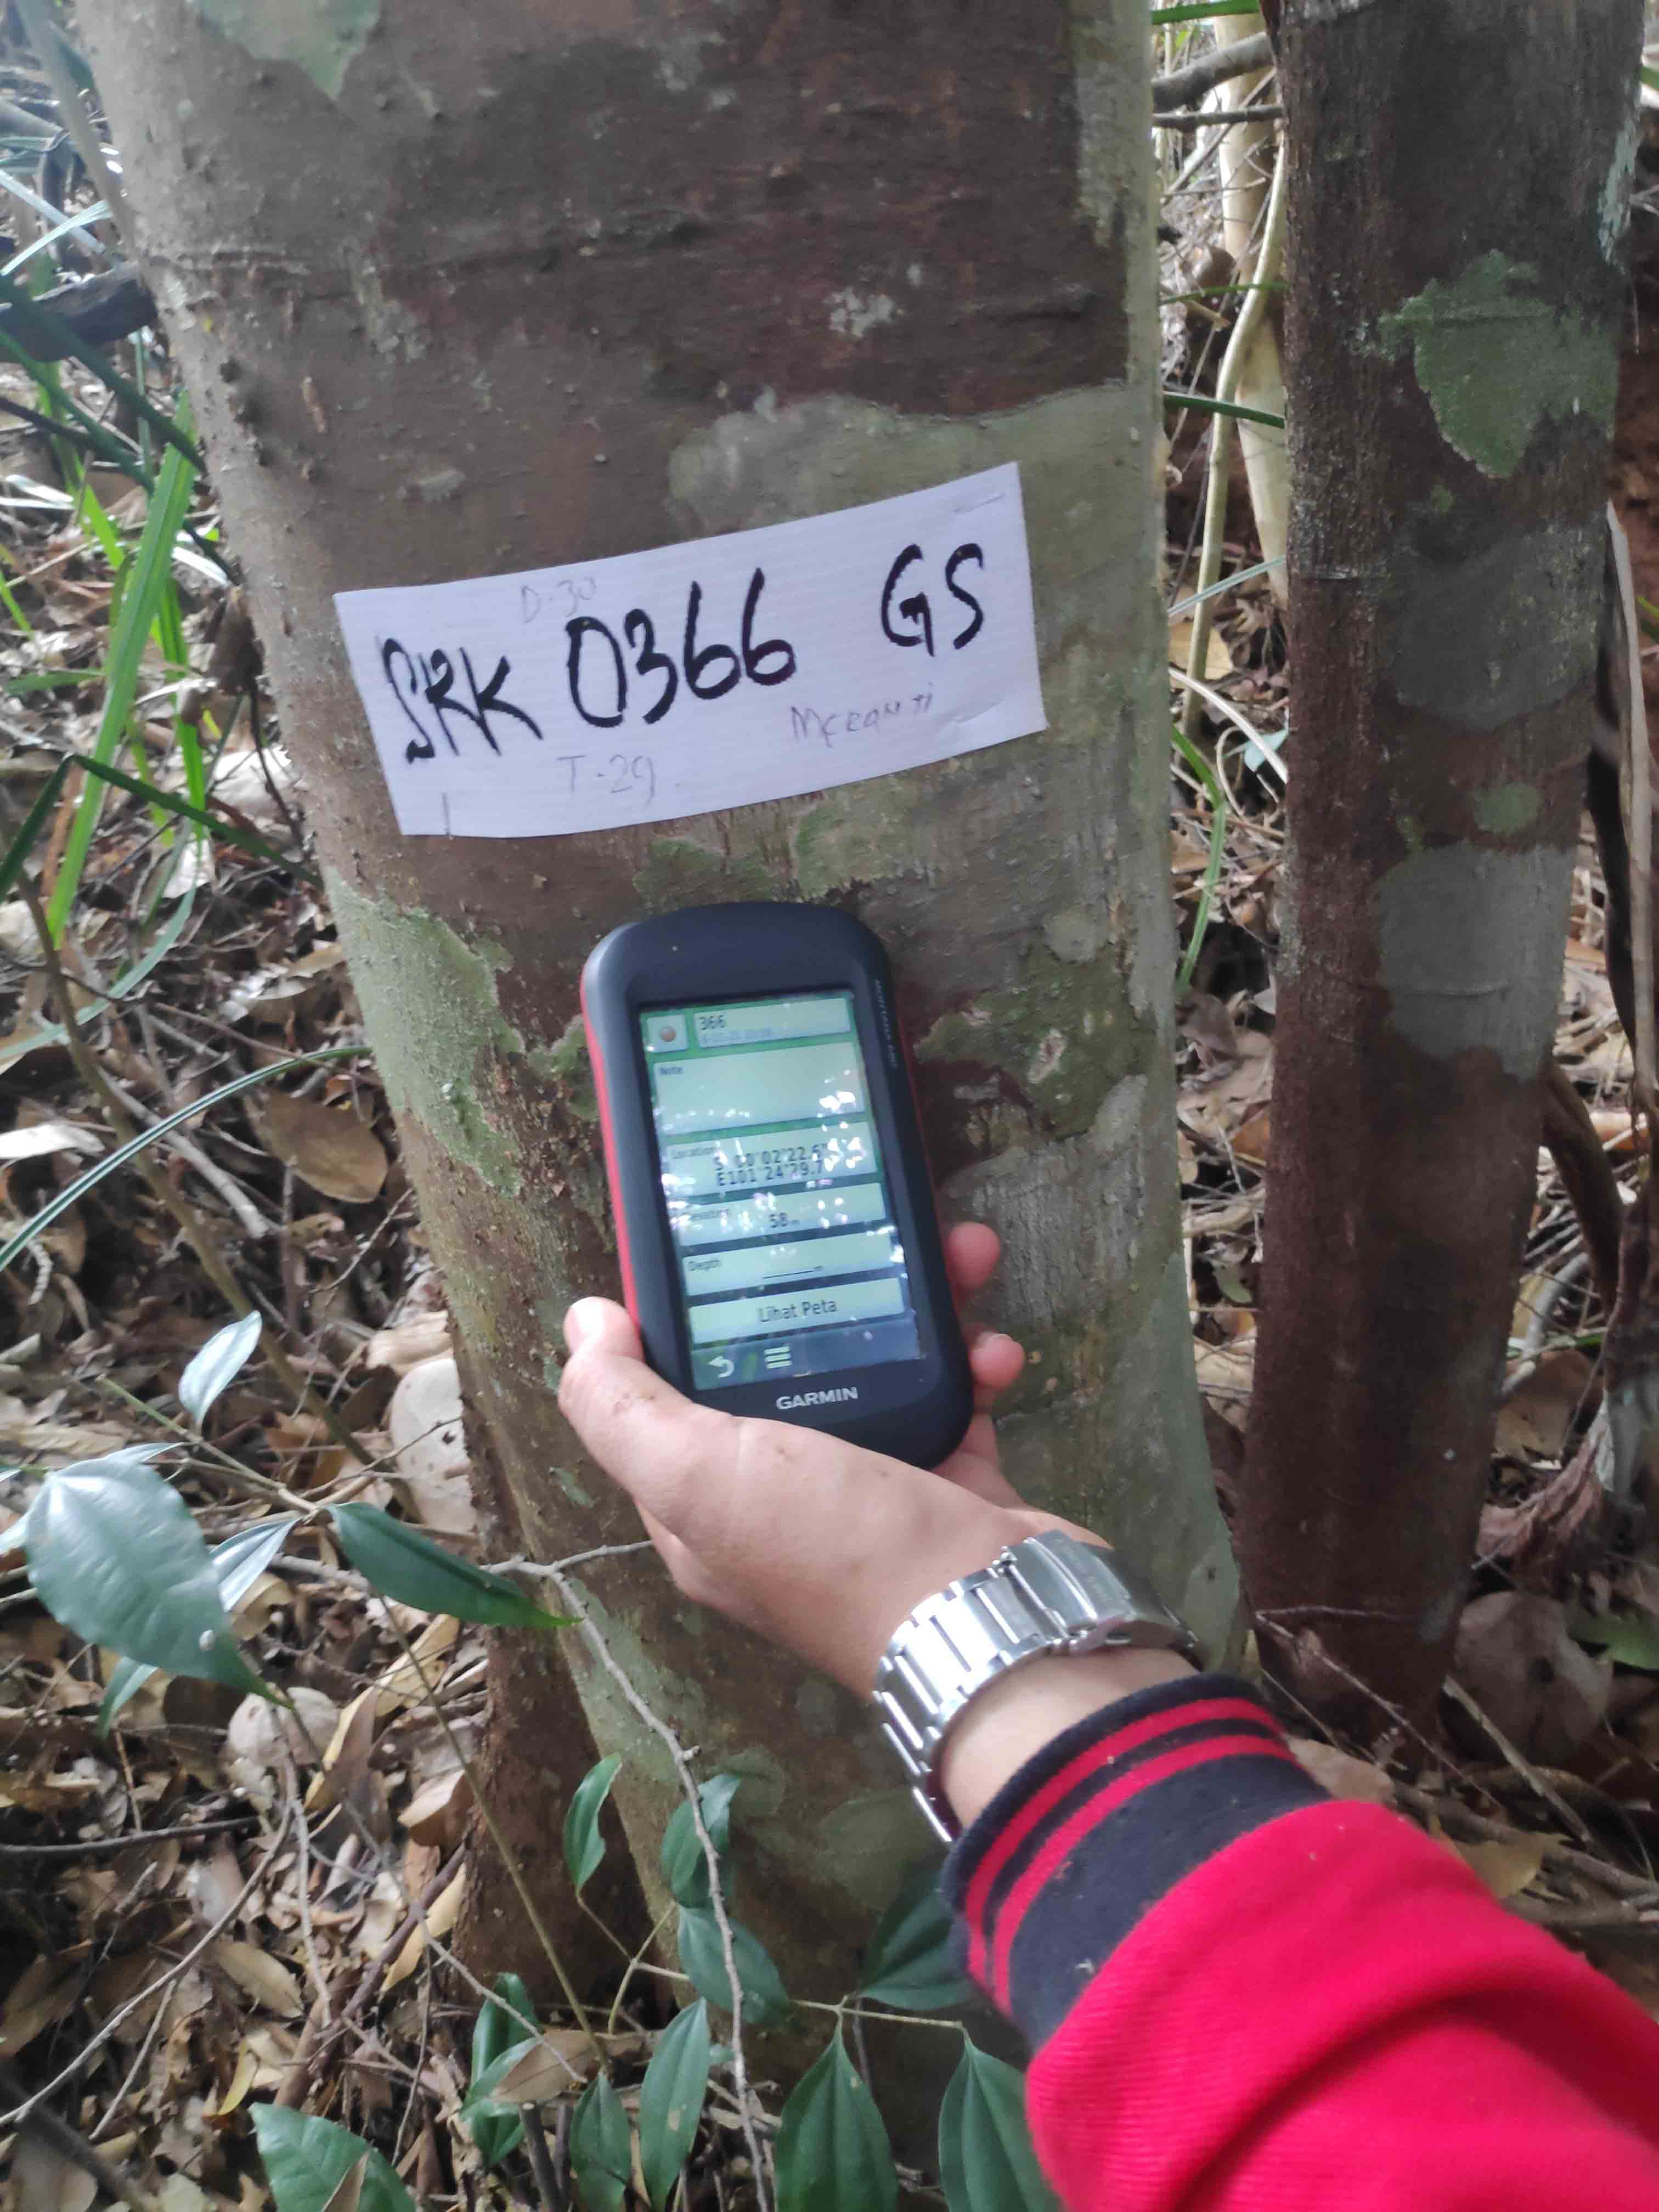 D-30
SKK 0366 GS
Meranti
T-29
366
Note
Location
S 00°02'22.6"
E101°24'29.7"
Elevation
58 m
Depth
Lihat Peta
GARMIN